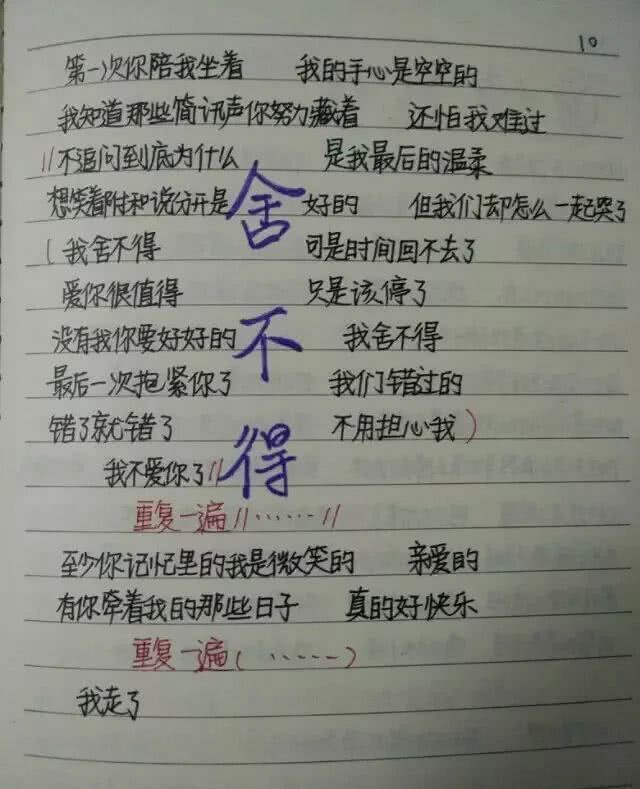 10
第一次你陪我坐着 我的手心是空空的
我知道那些简讯声你努力藏着 还怕我难过
//不追问到底为什么 是我最后的温柔
想笑着附和说分开是 好的 但我们却怎么一起哭了
(我舍不得 可是时间回不去了
爱你很值得 只是该停了
没有我你要好好的 我舍不得
最后一次抱紧你了 我们错过的
错了就错了 不用担心我)
我不爱你了//
舍
不
得
重复一遍//……//
至少你记忆里的我是微笑的 亲爱的
有你牵着我的那些日子 真的好快乐
重复一遍(……)
我走了